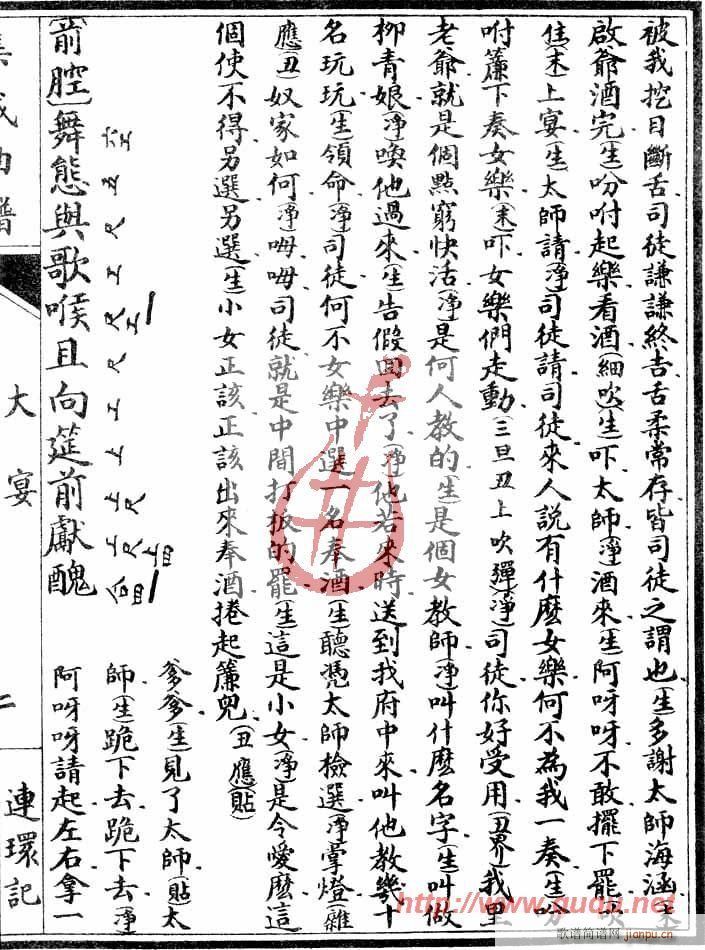 被我挖目斷舌司徒謙謙終吉舌柔常存皆司徒之謂也(生)多謝太師海涵(末)
啟爺酒完(生)吩咐起樂看酒(細吹)(生)吓太師(淨)酒來(生)阿呀呀不敢擺下罷
住(末)上宴(生)太師請(淨)司徒請司徒來人説有什麽女樂何不為我一奏(生)吩
咐簾下奏女樂(末)吓女樂們走動(三旦丑上吹彈)(淨)司徒你好受用(丑界)我里
老爺就是個點窮快活(淨)是何人教的(生)是個女教師(淨)叫什麽名字(生)叫做
柳青娘(淨)喚他過來(生)告假回去了(淨)他若來時送到我府中來叫他教幾十
名玩玩(生)領命(淨)司徒何不女樂中選一名奉酒(生)聽憑太師檢選(淨)掌燈雜
應(丑)奴家如何(淨)呣呣司徒就是中間打板的罷(生)這是小女(淨)是令愛麽這
個使不得另選另選(生)小女正該正該出來奉酒捲起簾兒(丑應)(貼)
爹爹(生)見了太師(貼)太
師(生)跪下去跪下去(淨)
阿呀呀請起左右拿一
[前腔]舞態與歌喉且向筵前獻醜
集成曲譜
大宴
二
連環記
http://www.ququ.net
歌谱简谱网 jianpu.cn